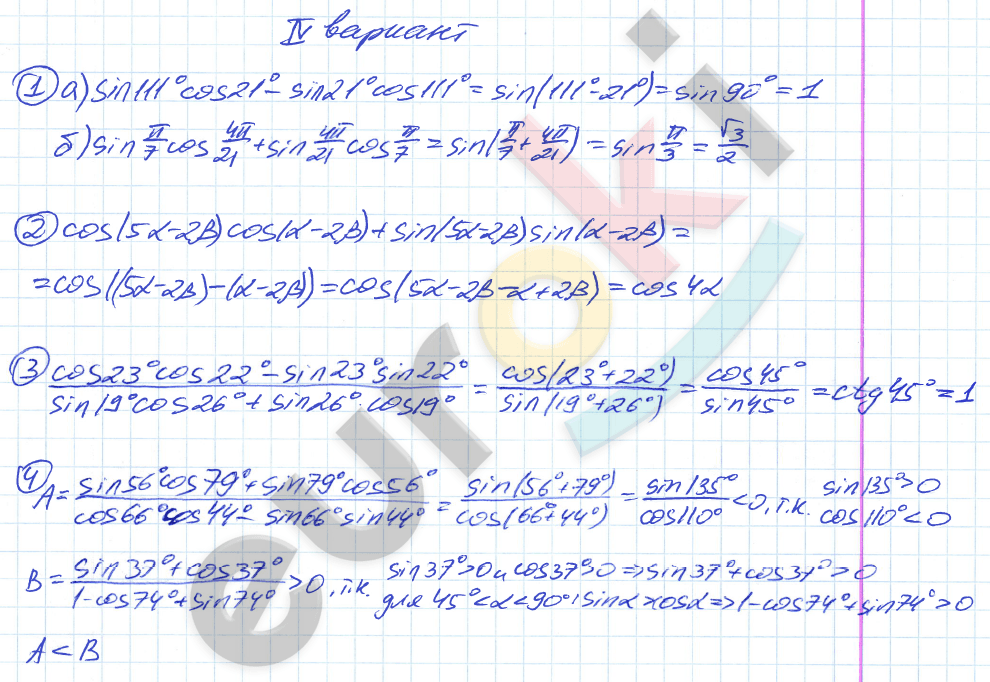 IV вариант
① а) sin111°cos21° - sin21°cos111° = sin(111°-21°) = sin90° = 1
б) sin π/7 cos 4π/21 + sin 4π/21 cos π/7 = sin(π/7 + 4π/21) = sin π/3 = √3/2
② cos(5α-2β)cos(α-2β) + sin(5α-2β)sin(α-2β) =
= cos((5α-2β)-(α-2β)) = cos(5α-2β-α+2β) = cos4α
③ (cos23°cos22° - sin23°sin22°)/(sin19°cos26° + sin26°·cos19°) = cos(23°+22°)/sin(19°+26°) = cos45°/sin45° = ctg45° = 1
④ A = (sin56°cos79° + sin79°cos56°)/(cos66°cos44° - sin66°sin44°) = sin(56°+79°)/cos(66°+44°) = sin135°/cos110° < 0, т.к. sin135°>0 cos110°<0
B = (sin37°+cos37°)/(1-cos74°+sin74°) > 0, т.к. sin37°>0 и cos37°>0 => sin37°+cos37°>0
для 45°<α<90°: sinα>cosα => 1-cos74°+sin74°>0
A < B
euroki